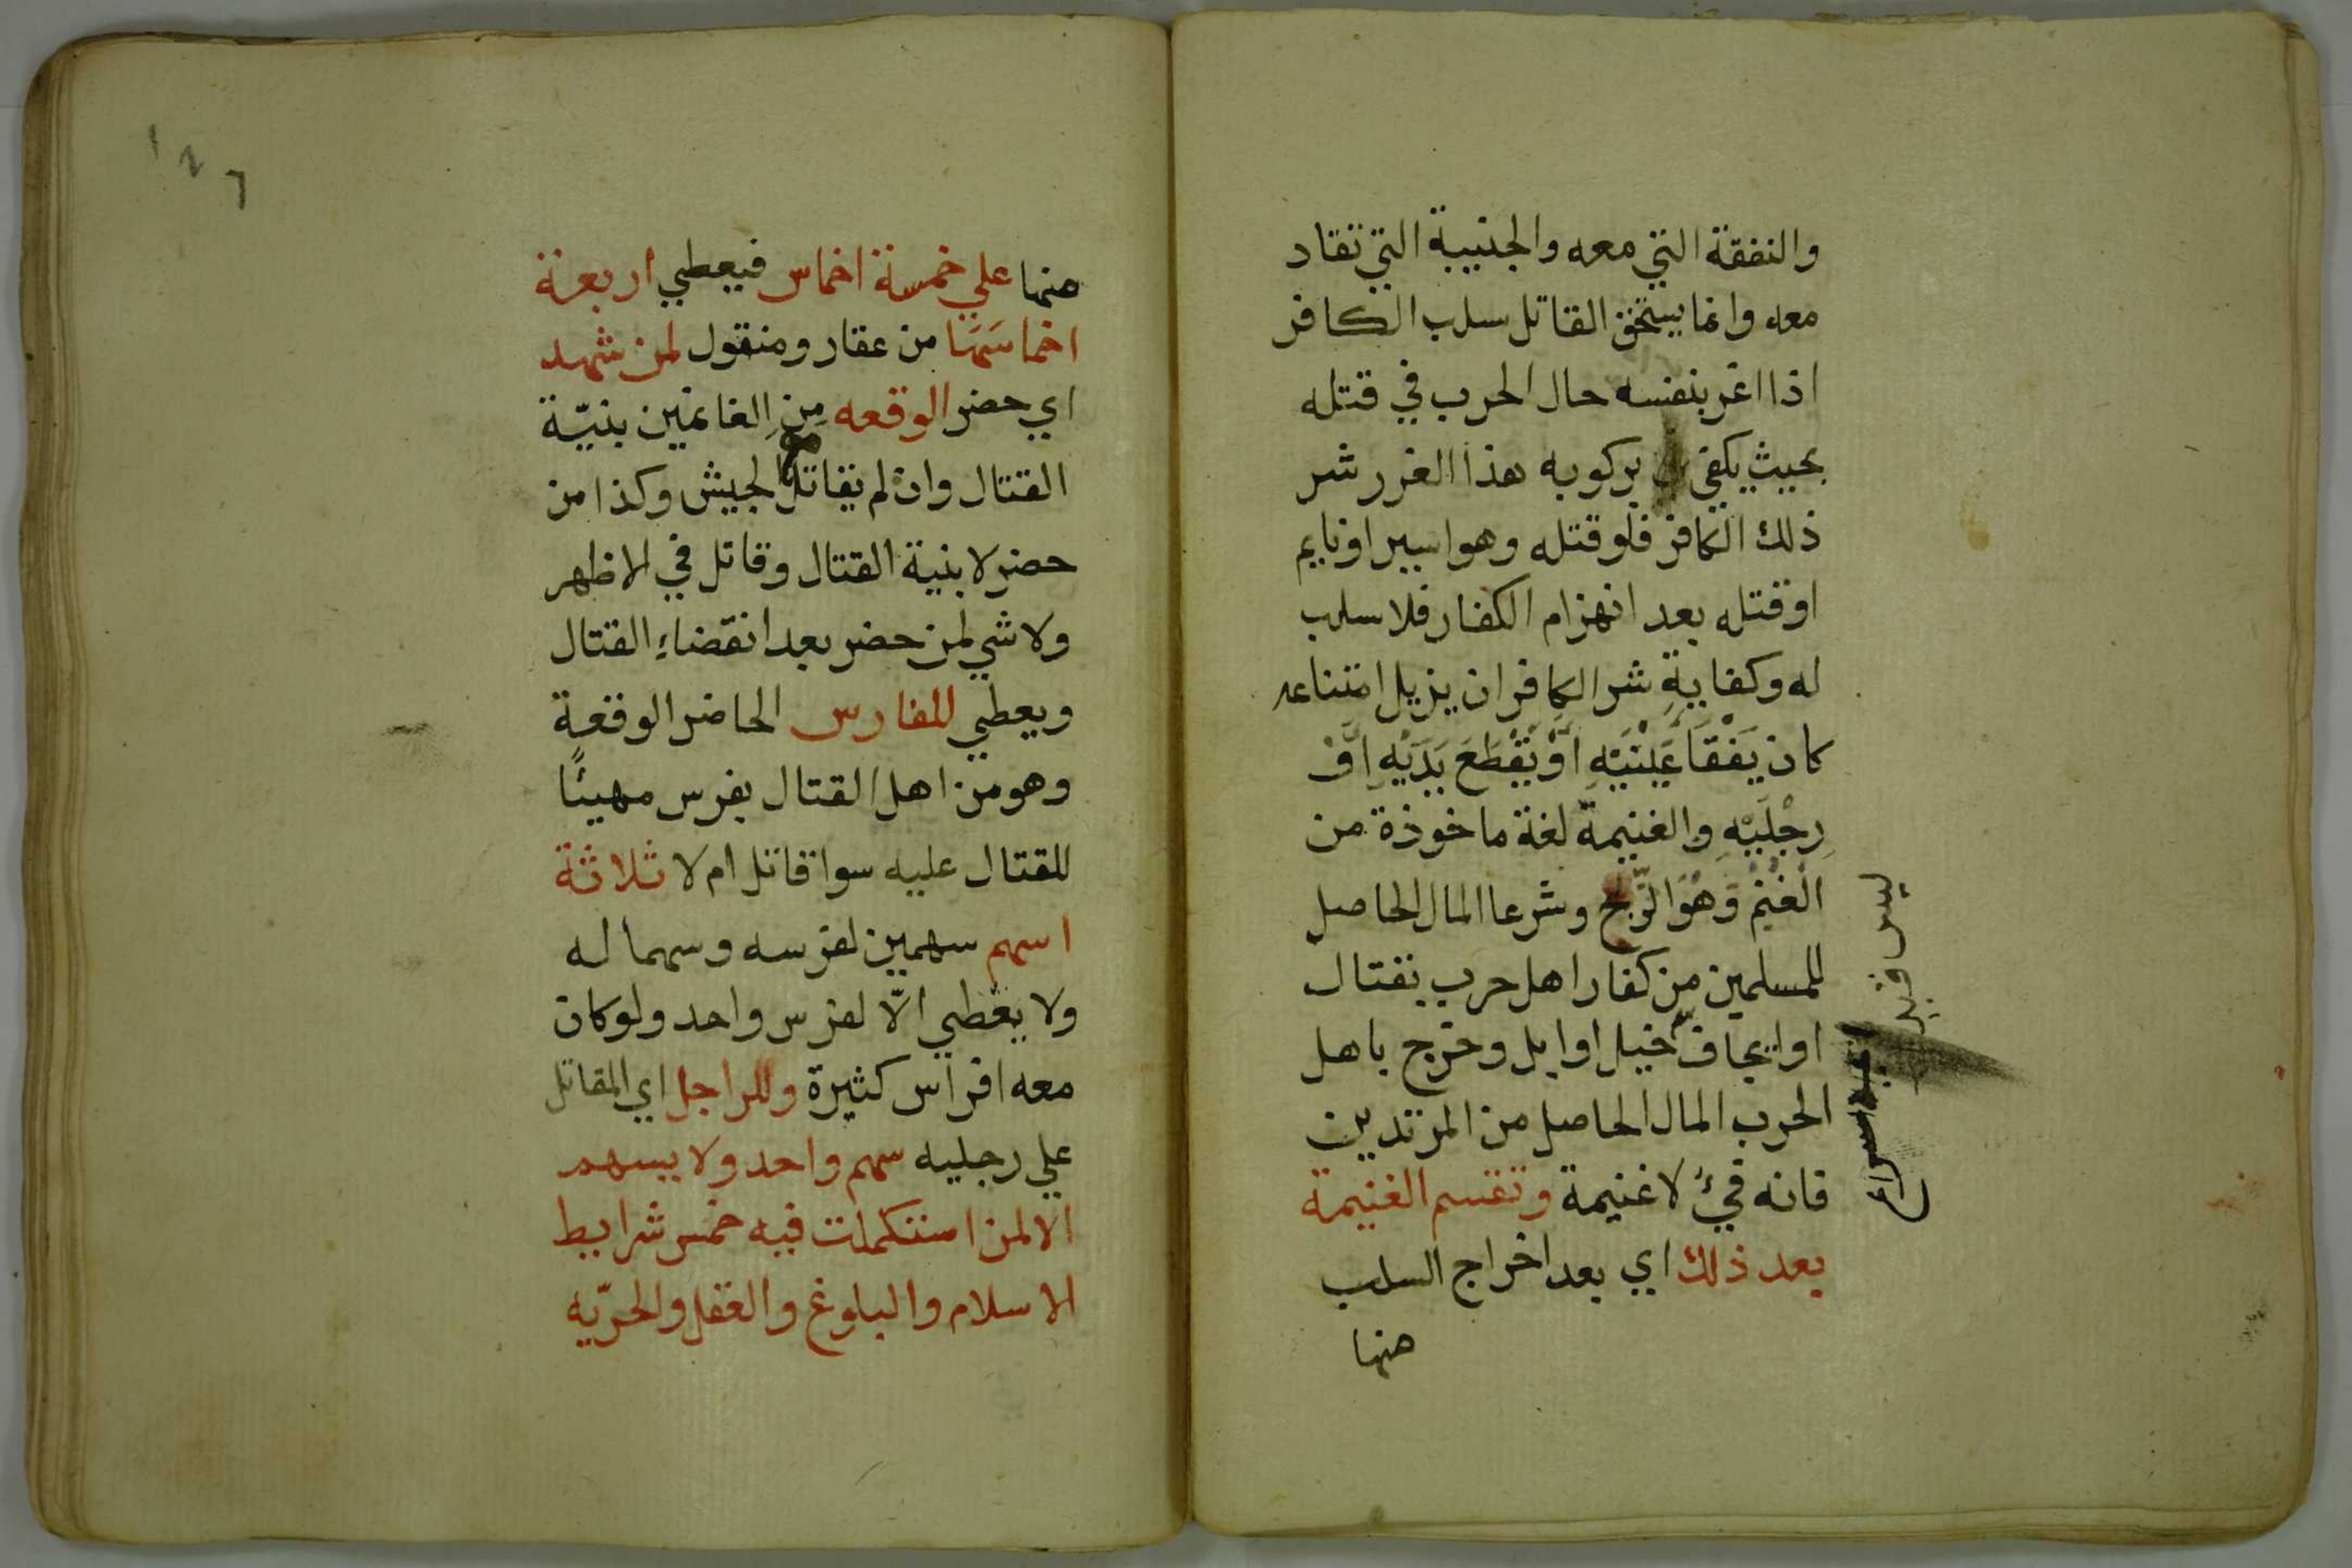 والنفقة التي معه والجنيبة التي تقاد
معه وانما يستحق القاتل سلب الكافر
اذا اغر بنفسه حال الحرب في قتله
بحيث يكفي بركوبه هذا الغرر شر
ذلك الكافر فلو قتله وهو اسير او نايم
او قتله بعد انهزام الكفار فلا سلب
له وكفاية شر الكافر ان يزيل امتناعه
كان يَفْقَأَ عَيْنَيْهِ اَوْ يَقْطَعَ يَدَيْهِ اَوْ
رِجْلَيْهِ والغنيمة لغة ماخوذة من
الْغُنْمِ وَهُوَ الرِّبح وشرعا المال الحاصل
للمسلمين من كفار اهل حرب بقتال
او ايجاف خيل او ابل وخرج باهل
الحرب المال الحاصل من المرتدين
فانه فيءٌ لا غنيمة وتقسم الغنيمة
بعد ذلك اي بعد اخراج السلب
منها
ليس فيه
منها علي خمسة اخماس فيعطي اربعة
اخماسها من عقار ومنقول لمن شهد
اي حضر الوقعه مِنِ الغانمين بنيّة
القتال وان لم يقاتل مع الجيش وكذا من
حضر لا بنية القتال وقاتل في الاظهر
ولا شي لمن حضر بعد انقضاءِ القتال
ويعطي للفارس الحاضر الوقعة
وهو من اهل القتال بفرس مهيئًا
للقتال عليه سوا قاتل ام لا ثلاثة
اسهم سهمين لفرسه وسهما له
ولا يعطي الّا لفرس واحد ولو كان
معه افراس كثيرة وللراجل اي المقاتل
علي رجليه سهم واحد ولا يسهم
الا لمن استكملت فيه خمس شرايط
الاسلام والبلوغ والعقل والحرّيه